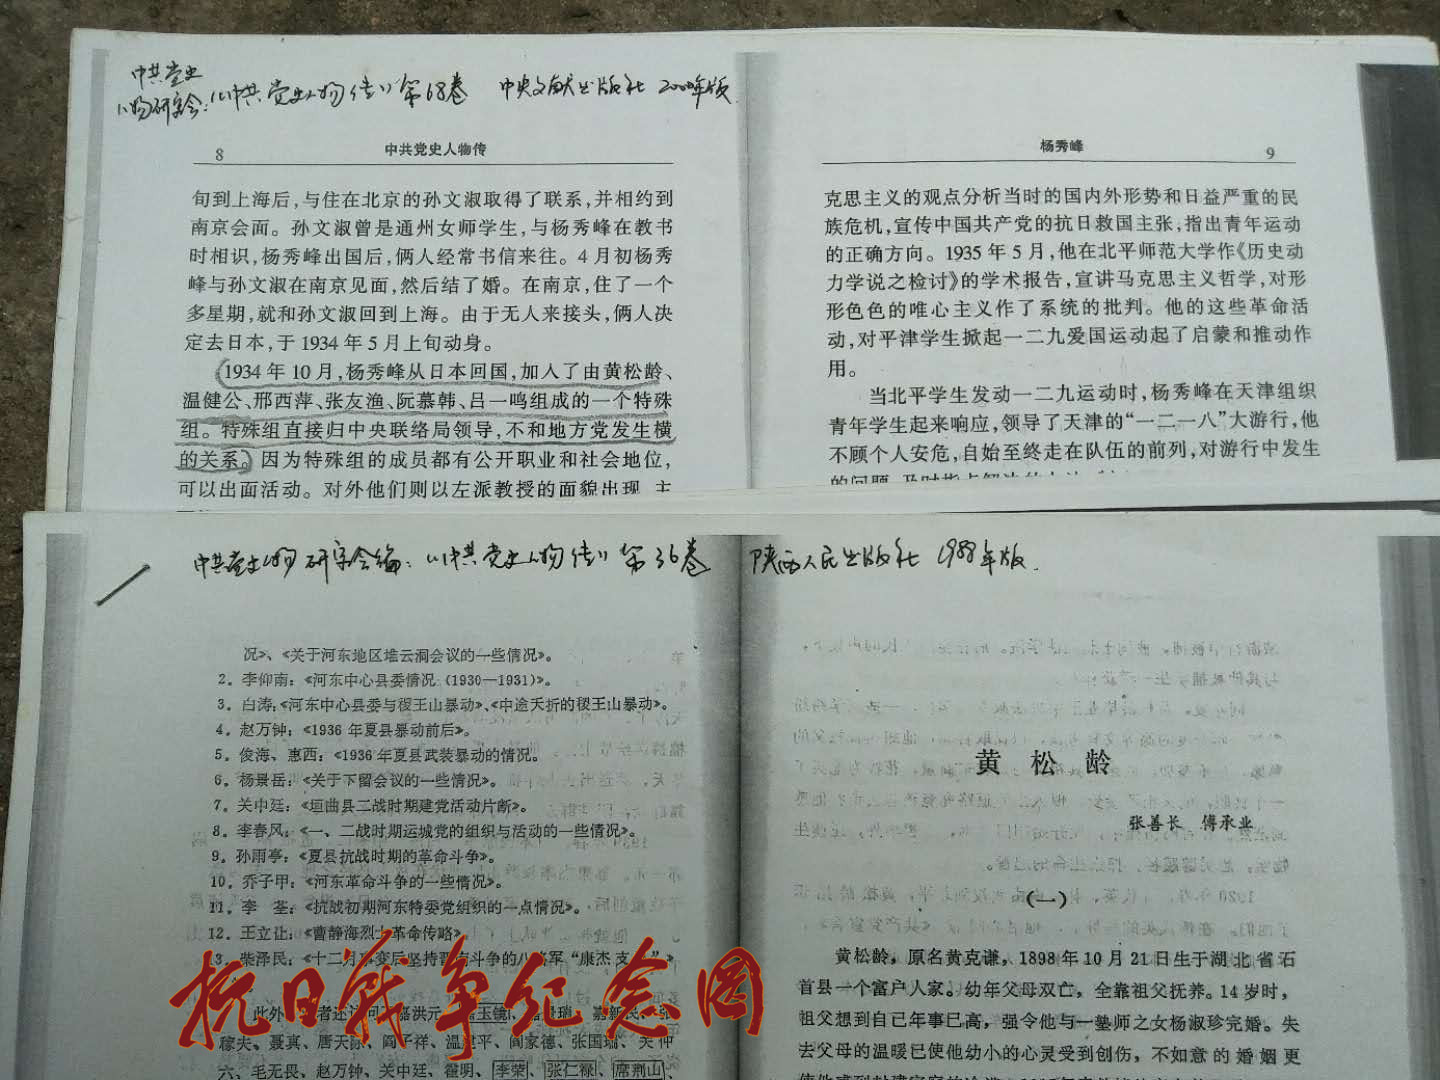 中共党史
人物研究会：《中共党史人物传》第68卷 中央文献出版社 2000年版
8 中共党史人物传
旬到上海后，与住在北京的孙文淑取得了联系，并相约到
南京会面。孙文淑曾是通州女师学生，与杨秀峰在教书
时相识，杨秀峰出国后，俩人经常书信来往。4月初杨秀
峰与孙文淑在南京见面，然后结了婚。在南京，住了一个
多星期，就和孙文淑回到上海。由于无人来接头，俩人决
定去日本，于1934年5月上旬动身。
1934年10月，杨秀峰从日本回国，加入了由黄松龄、
温健公、邢西萍、张友渔、阮慕韩、吕一鸣组成的一个特殊
组。特殊组直接归中央联络局领导，不和地方党发生横
的关系。因为特殊组的成员都有公开职业和社会地位，
可以出面活动。对外他们则以左派教授的面貌出现，主
杨秀峰 9
克思主义的观点分析当时的国内外形势和日益严重的民
族危机，宣传中国共产党的抗日救国主张；指出青年运动
的正确方向。1935年5月，他在北平师范大学作《历史动
力学说之检讨》的学术报告，宣讲马克思主义哲学，对形
形色色的唯心主义作了系统的批判。他的这些革命活
动，对平津学生掀起一二九爱国运动起了启蒙和推动作
用。
当北平学生发动一二九运动时，杨秀峰在天津组织
青年学生起来响应，领导了天津的“一二一八”大游行，他
不顾个人安危，自始至终走在队伍的前列，对游行中发生
的问题
中共党史人物研究会编：《中共党史人物传》第36卷 陕西人民出版社 1988年版.
况》、《关于河东地区堆云洞会议的一些情况》。
2．李仰南：《河东中心县委情况（1930—1931）》。
3．白涛：《河东中心县委与稷王山暴动》、《中途夭折的稷王山暴动》。
4．赵万钟：《1936年夏县暴动前后》。
5．俊海、惠西：《1936年夏县武装暴动的情况。
6．杨景岳：《关于下留会议的一些情况》。
7．关中廷：《垣曲县二战时期建党活动片断》。
8．李春风：《一、二战时期运城党的组织与活动的一些情况》。
9．孙雨亭：《夏县抗战时期的革命斗争》。
10．乔子甲：《河东革命斗争的一些情况》。
11．李 荃：《抗战初期河东特委党组织的一点情况》。
12．王立让：《曹静海烈士革命传略》
13．柴泽民：《十二月事变后坚持晋南斗争的八路军“康杰支队”》
此外 嘉洪元 玉镜 嘉新民、张
稼夫、聂真、唐天际、阎子祥、温建平、阎家德、张国瑞、关仲
六、毛无畏、赵万钟、关中廷、霍明、李荣、张仁禄、席荆山、
黄松龄
张善长 傅承业
（一）
黄松龄，原名黄克谦，1898年10月21日生于湖北省石
首县一个富户人家。幼年父母双亡，全靠祖父抚养。14岁时，
祖父想到自己年事已高，强令他与一塾师之女杨淑珍完婚。失
去父母的温暖已使他幼小的心灵受到创伤，不如意的婚姻更
抗日战争纪念网